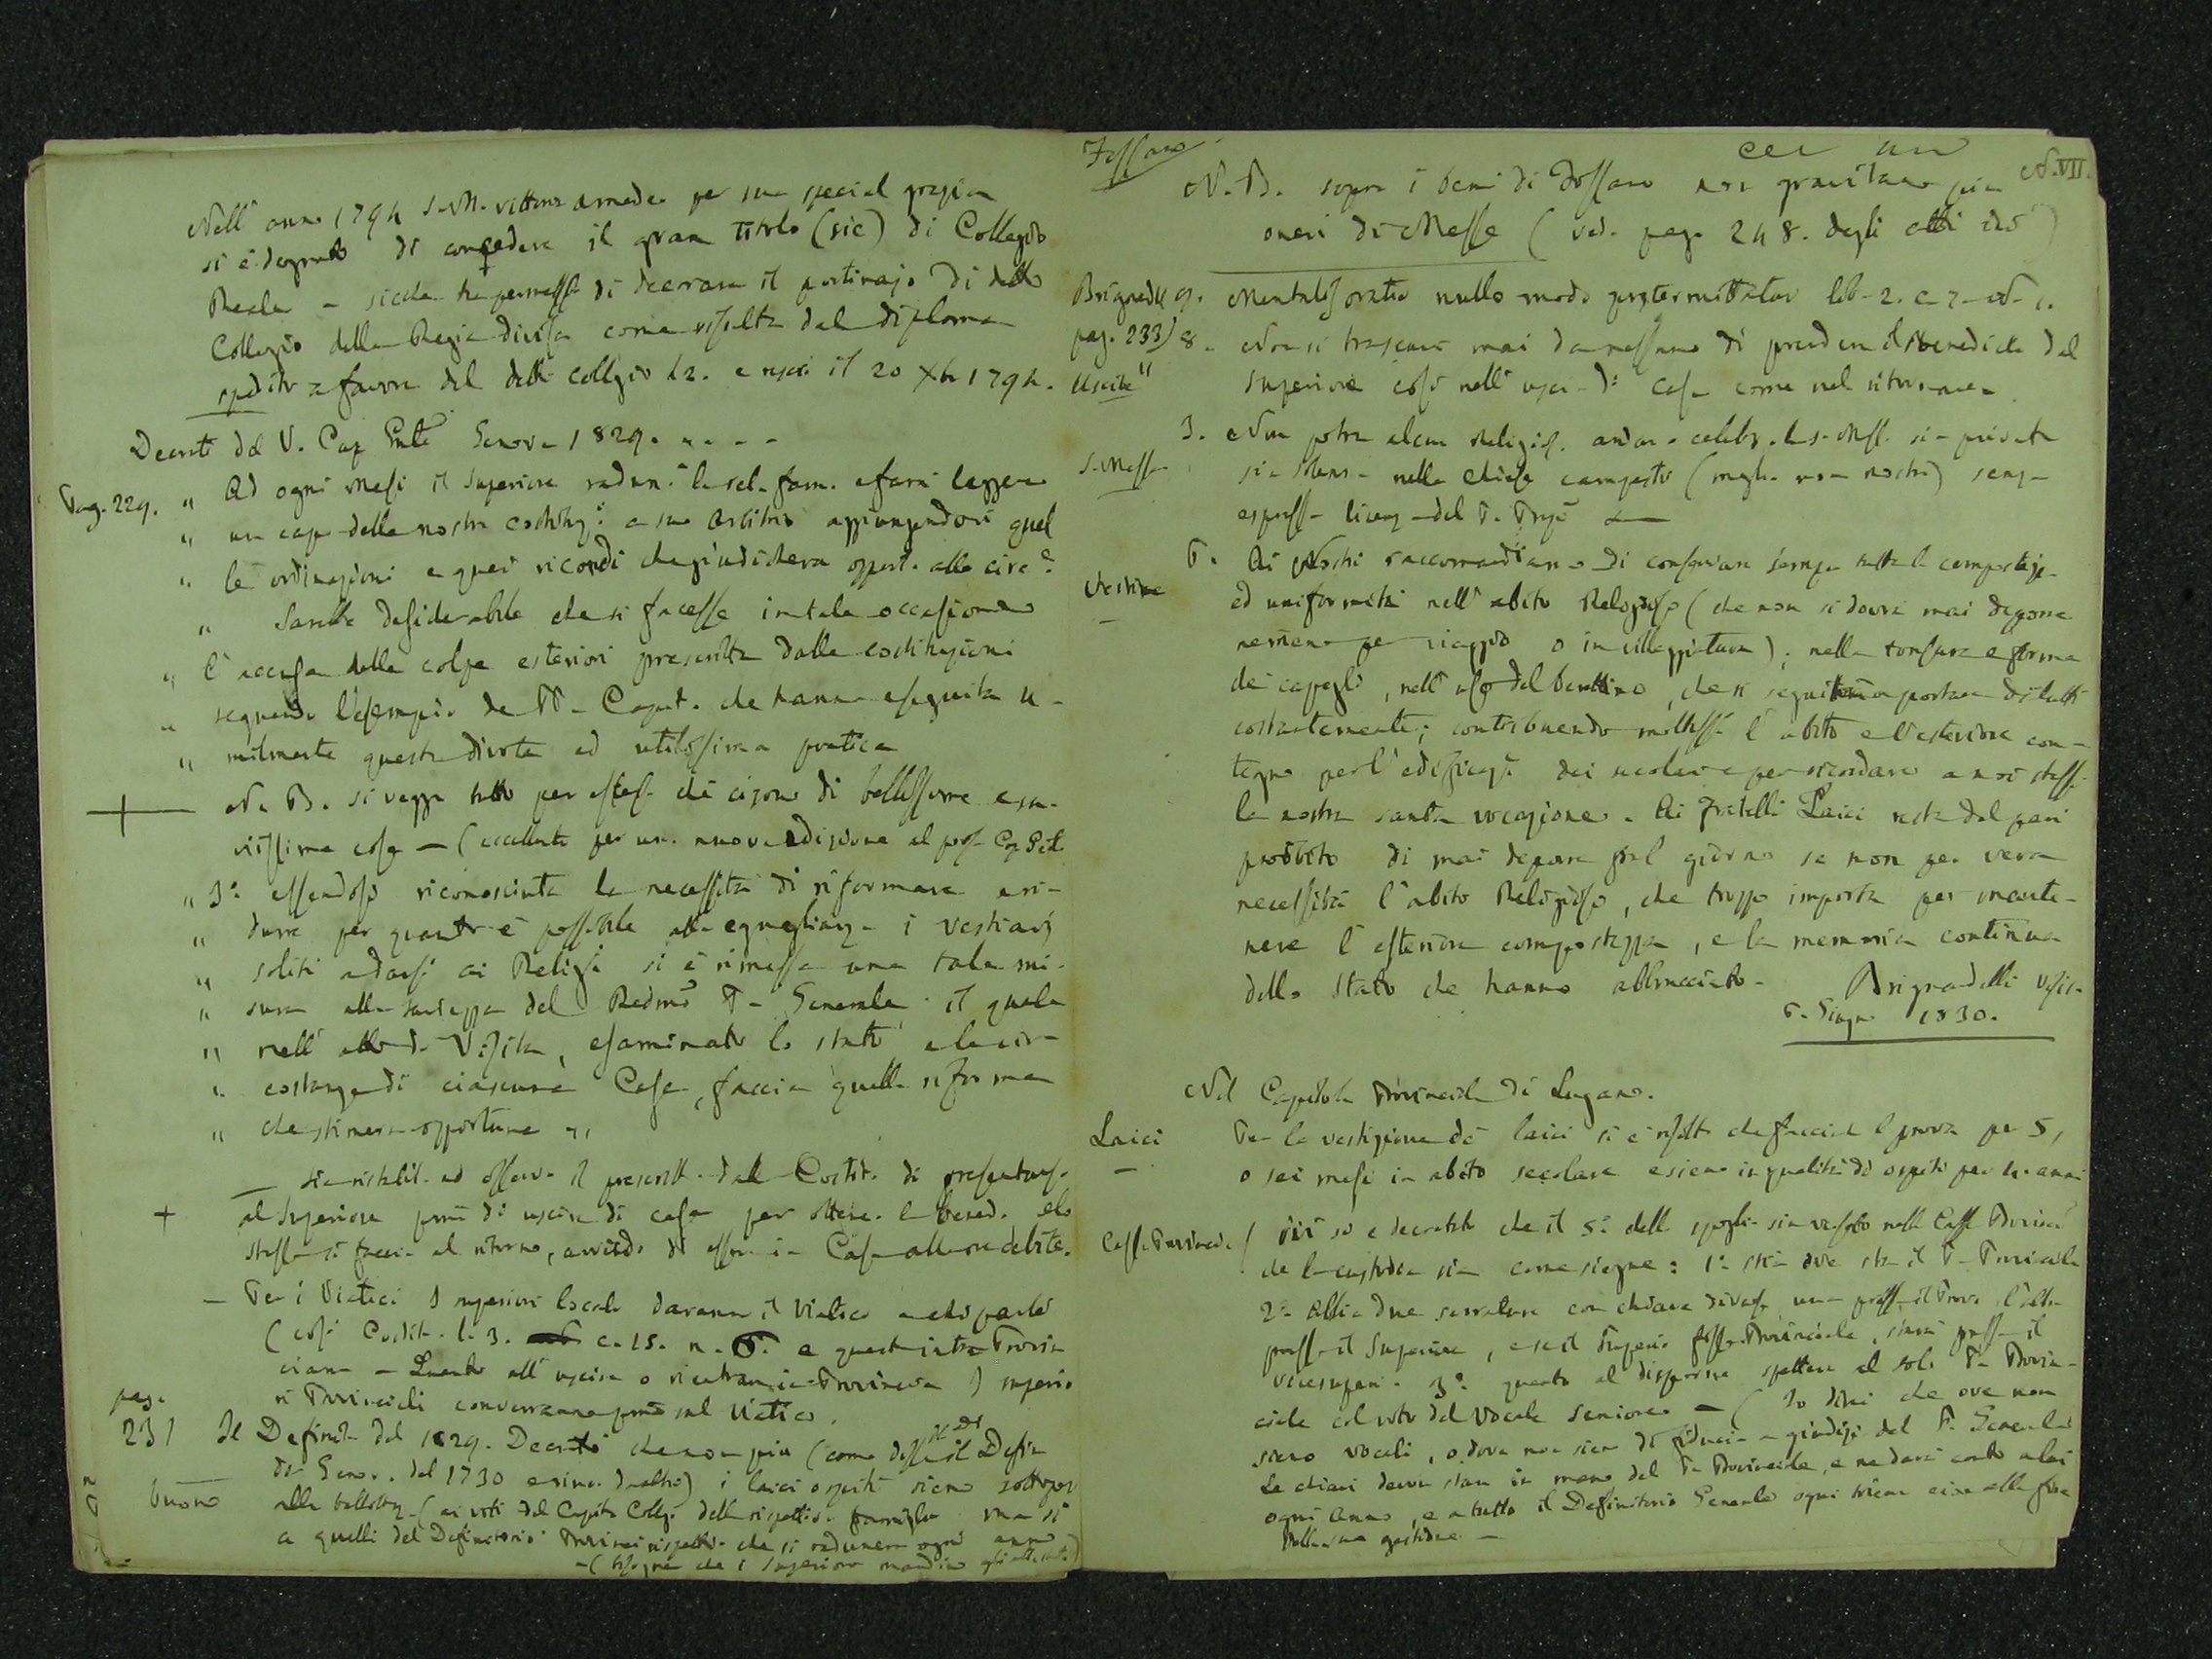 Nell' anno 1794 S. M. Vittorio Amedeo per sua special grazia
si è degnato di concedere il gran titolo (sic) di Collegio
Reale - siccome ha permesso di decorare il portinajo di detto
Collegio della Regia divisa come risulta dal diploma
spedito a favore del detto collegio li 2. e 20 Xbr 1794.
Decreti del V. Cap. Gnle Genova 1829. . . . .
Pag. 229. " Ad ogni Mese il Superiore raduni la rel. fam. e farà leggere
" un capo delle nostre costituz.i a suo arbitrio aggiungendovi quel
" le ordinazioni e quei ricordi che giudicherà opport. alle circ.e
" Sarebbe desiderabile che si facesse in tale occasione
" l'accusa delle colpe esteriori prescritta dalle costituzioni
" seguendo l'esempio de PP. Capit. che hanno eseguita u-
" milmente questa divota ed utilissima pratica
N. B. si vegga tutto per esteso di bellissime e sa-
vissime cose - (eccellente per una nuova edizione al pros. Cap. Gnl.
" 3° essendosi riconosciuta la necessità di riformare e ri-
" durre per quanto è possibile alla eguaglianza i vestiarj
" soliti a darsi ai Religiosi si è rimessa una tale mi-
" sura alla saviezza del Redmo P. Generale il quale
" nell' atto di Visita, esaminato lo stato e le cir-
" costanze di ciascuna Casa, faccia quella riforma
" che stimerà opportuna "
- sia ristabilit. ed osserv. il prescritt. dalle Costit. di presentarsi
+ al Superiore prima di uscire di casa per ottene. la bened. e lo
stesso si faccia al ritorno, avvisato di essere in Casa alle ore debite.
- Per i Viatici I superiori locali daranno il Viatico a chi parte
(così Costit. l. 3. c. 15. n. 6. e questo intra Provin
ciam - Quanto all' uscire o rientrare in Provincia I superio
ri Provinciali converranno prima sul Viatico.
pag.
231 Il Definit. del 1829. Decretò che non più (come disse il Defin
di Geno. del 1730 e altri) i laici ospiti sieno sottopos
buono alla ballottaz. (ai voti del Capito Colleg. della rispettiv. famiglia ma sì
a quelli del Definitorio Provinc. rispettiv. che si radunerà ogni anno
-(bisogna che i Superiori mandino gli attestati)
Fossano
N. VII.
N. B. sopra i beni di Fossano non gravitano più
oneri di Messe (ved. pag. 248. degli atti)
Brignadelli 7. Mentalis oratio nullo modo praetermittatur lib. 2. c. 7 - N. 1.
pag. 233) 8. Non si trascuri mai da nessuno di prendere il Benedicite dal
Uscite" Superiore così nell' usci. di casa come nel ritornare.
3. Non potrà alcun Religios. andar a celebr. la s. Mess. sia privata
S. Messa sia solenne nelle Chiese campestri (meglio non nostre) senza
espressa licenz. del P. Prep.o
6. Ai Nostri raccomandiamo di conservare sempre tutta la compostezza
Vestire ed uniformità nell' abito Religioso (che non si dovrà mai deporre
nemeno per viaggio o in villeggiatura); nella tonsura e forma
dei capegli, nell' uso del berettino, che si seguiterà a portare da tutti
costantemente; contribuendo moltiss. l'abito e l'esteriore con-
tegno per l'edificaz.e dei secolari e per ricordare a noi stessi
la nostra santa vocazione. Ai Fratelli Laici resta del pari
proibito di mai deporre fral giorno se non per vera
necessità l'abito Religioso, che troppo importa per mante-
nere l'esteriore compostezza, e la memoria continua
dello Stato che hanno abbracciato.
Brignadelli Visit.
6. Giugn. 1830.
Nel Capitolo Provinciale di Lugano.
Laici Per la vestizione de' laici si è risolto che faccian la prova per 5,
o sei mesi in abito secolare e sieno in qualità di ospiti per 4 anni
Cassa Provinciale ivi si è decretato che il 5° dello spoglio sia versato nella Cassa Provinc.
che la custodia sia come siegue: 1° stia ove sta il P. Provinciale
2° Abbia due serrature con chiave divers. una presso il Prov. l'altra
presso il Superiore, e se il Superio fosse Provinciale, starà presso il
vicesuperi. 3° quanto al disporne spettare al solo P. Provin-
ciale col voto del Vocale Seniore - (Io direi che ove non
sieno vocali, o dove non sien di fiducia a giudizi. del P. Generale
le chiavi devon stare in mano del P. Provinciale, e ne darà conto a lui
ogni Anno, e a tutto il Definitorio Generale ogni trien. cioè alla fine
della sua gestione -